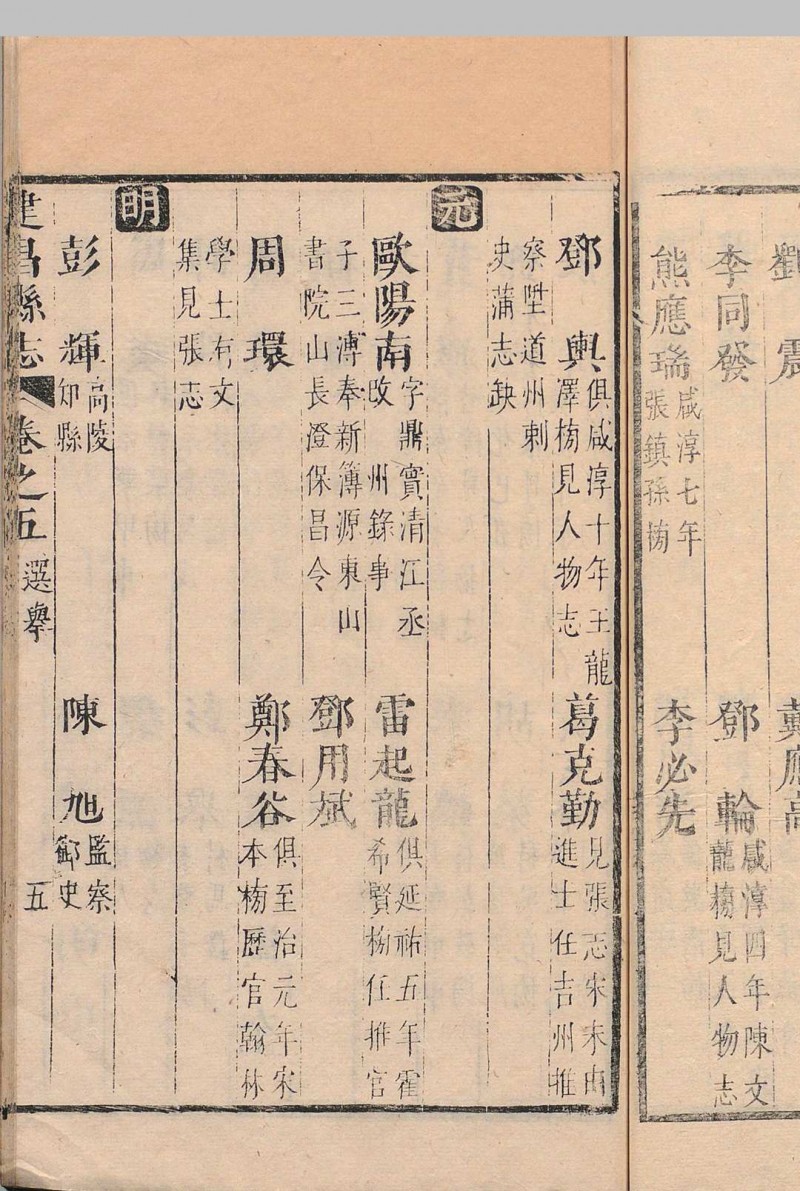 劉震 戴應高
李同發 鄧輪咸淳四年陳文龍榜見人物志
熊應瑞咸淳七年張鎮孫榜 李必先
鄧輿俱咸淳十年王龍澤榜見人物志 葛克勤見張志宋末由進士任吉州推
察陞道州刺史蒲志缺
元
歐陽南字鼎實清江丞改 州錄事 雷起龍俱延祐五年霍希賢榜任推官
子三溥奉新簿源東山書院山長澄保昌令 鄧用斌
周環 鄭春谷俱至治元年宋本榜歷官翰林
學士有文集見張志
明
彭輝高陵知縣 陳旭監察御史
建昌縣志 卷之五 選舉 五